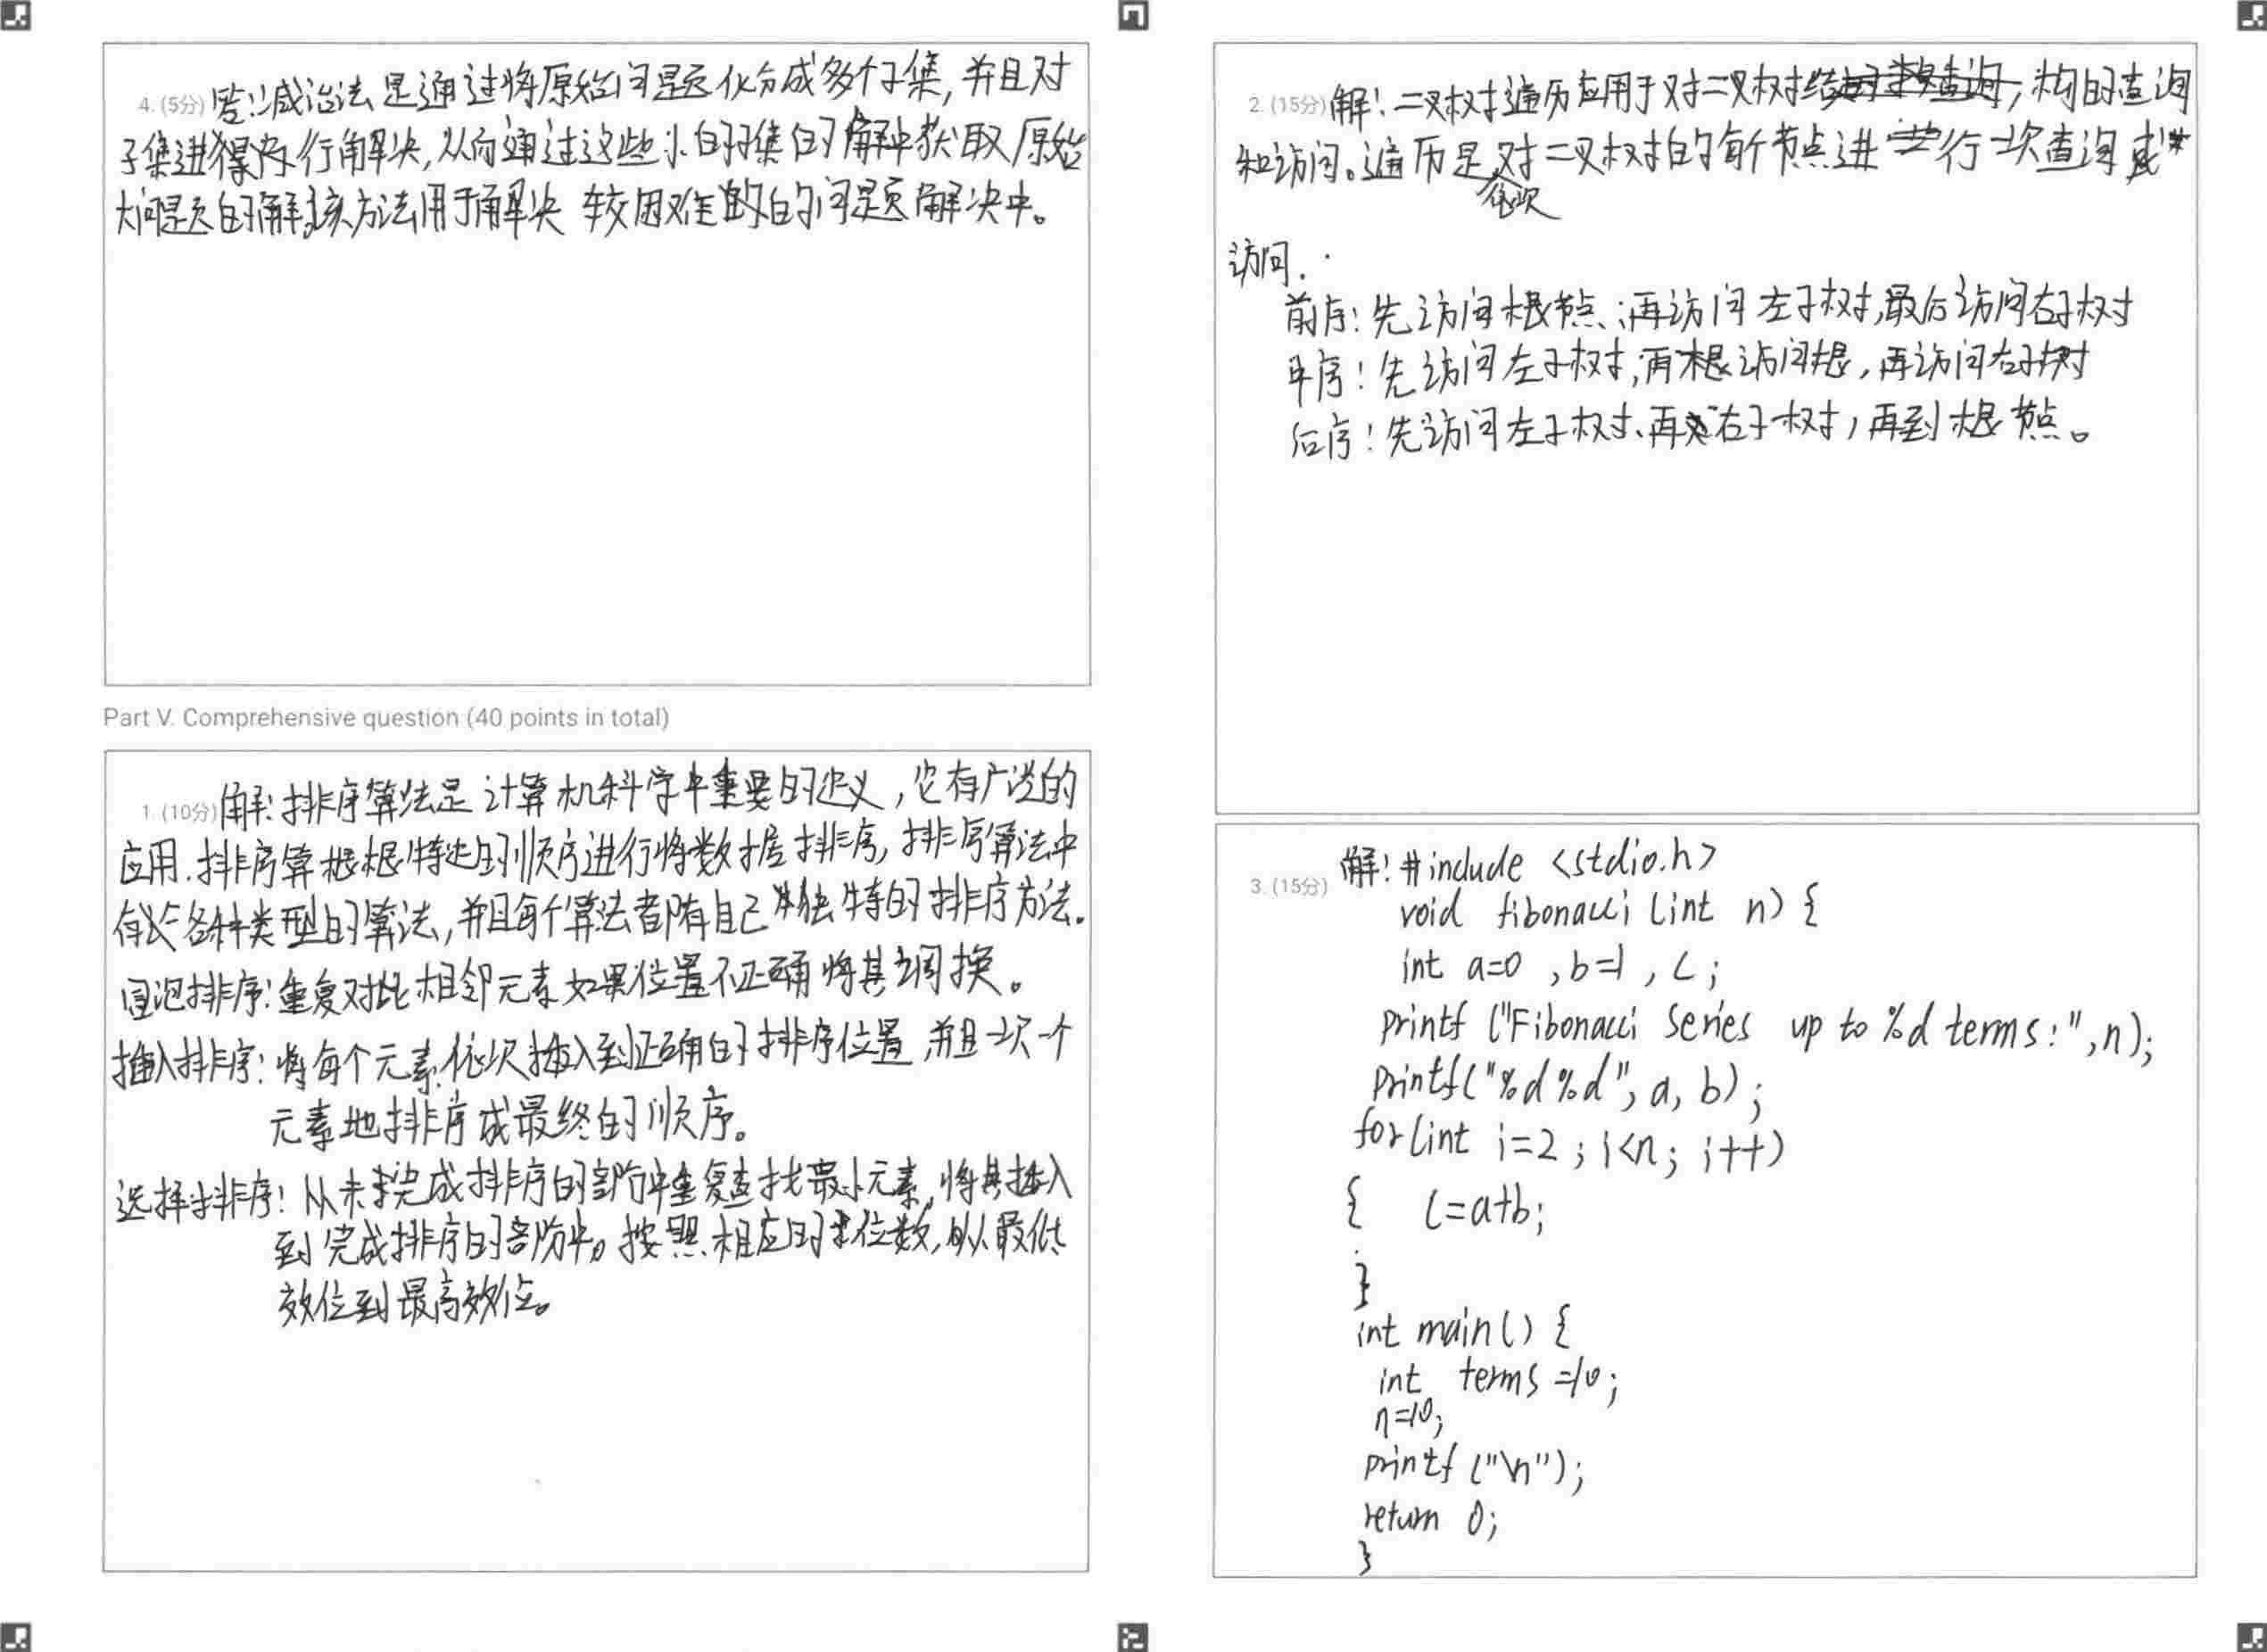 4. (5分) 答:减治法是通过将原始问题化分成多个子集,并且对
子集进行解决,从而通过这些小的子集的解中获取原始
大问题的解,该方法用于解决较困难的的问题解决中。
Part V. Comprehensive question (40 points in total)
1. (10分) 解:排序算法是计算机科学中重要的定义,它有广泛的
应用.排序算根根特定的顺序进行将数据排序,排序算法中
有各种类型的算法,并且每个算法都有自己独特的排序方法.
冒泡排序:重复对比相邻元素如果位置不正确将其调换。
插入排序:将每个元素依次插入到正确的排序位置,并且一次一个
元素地排序成最终的顺序。
选择排序:从未完成排序的部分中重复查找最小元素,将其插入
到完成排序的部分中。按照相应的位数,从最低
效位到最高效位。
2. (15分) 解:二叉树遍历应用于对二叉树结构的查询
和访问。遍历是依次对二叉树的每个节点进行一次查询或
访问.
前序:先访问根节点;再访问左子树,最后访问右子树
中序:先访问左子树,再根访问根,再访问右子树
后序:先访问左子树、再右子树,再到根节点。
3. (15分) 解:#include <stdio.h>
void fibonacci (int n) {
int a=0 ,b=1 , c;
printf ("Fibonacci Series up to %d terms:",n);
printf("%d%d", a, b);
for(int i=2 ; i<n; i++)
{ c=a+b;
}
int main() {
int terms =10;
n=10;
printf ("\n");
return 0;
}